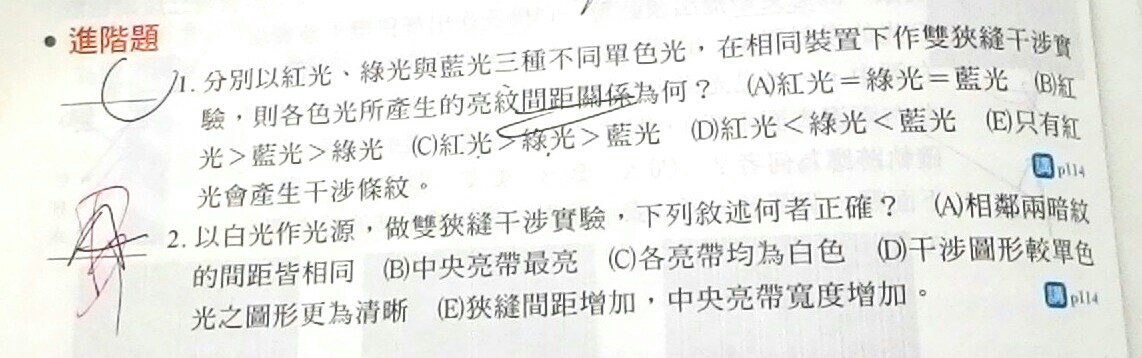 • 進階題
C 1. 分別以紅光、綠光與藍光三種不同單色光，在相同裝置下作雙狹縫干涉實
驗，則各色光所產生的亮紋間距關係為何？ (A)紅光＝綠光＝藍光 (B)紅
光＞藍光＞綠光 (C)紅光＞綠光＞藍光 (D)紅光＜綠光＜藍光 (E)只有紅
光會產生干涉條紋。 p114
2. 以白光作光源，做雙狹縫干涉實驗，下列敘述何者正確？ (A)相鄰兩暗紋
的間距皆相同 (B)中央亮帶最亮 (C)各亮帶均為白色 (D)干涉圖形較單色
光之圖形更為清晰 (E)狹縫間距增加，中央亮帶寬度增加。 p114